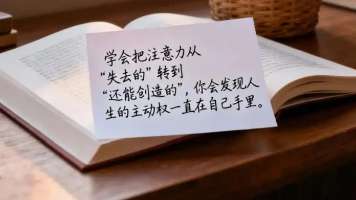 学会把注意力从
“失去的”转到
“还能创造的”，你会发现人
生的主动权一直在自己手里。